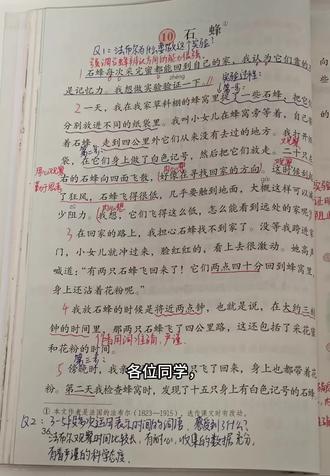 10 石蜂①
Q1：法布尔为什么要做这个实验？
1 石蜂每次采完蜜都能回到自己的家，我认为它们靠的
是记忆力。我想做实验验证一下。
zhēng
实验过程：
2 一天，我在我家草料棚的蜂窝里捉了一些石蜂，把它们
分别放进不同的纸袋里。我叫小女儿在蜂窝旁等着，自己带
着石蜂，走到四公里外它们从来没有去过的地方。我打开纸
袋，在它们身上做了白色记号，然后把它们放走。二十只左
右的石蜂向四面飞散，好像在寻找回家的方向。这时候刮起
了狂风，石蜂飞得很低，几乎要触到地面，大概这样可以减
少阻力。我想，它们飞得这么低，怎么能看到远处的家呢？
3 在回家的路上，我担心石蜂找不到家了。没等我跨进家
门，小女儿就冲过来，脸红红的，看上去很激动。她高声
喊道：“有两只石蜂飞回来了！它们两点四十分回到蜂窝里，
身上还沾着花粉呢。”
4 我放石蜂的时候是将近两点钟，也就是说，在大约三刻
钟的时间里，那两只石蜂飞了四公里路，这还包括了采花蜜
和花粉的时间。
作者用词准确、严谨
第三步：
各位同学，
5 傍晚时，我亲眼
只飞了回来，身上也都带着花
粉。第二天我检查蜂窝时，发现了十五只身上有白色记号的石蜂
① 本文作者是法国的法布尔（1823—1915），选作课文时有改动。
36
Q2：3-5段多次运用表示时间的词语，感受到了什么？
法布尔观察时间比较长，有耐心，收集的数据充分，
有着严谨的科学态度。